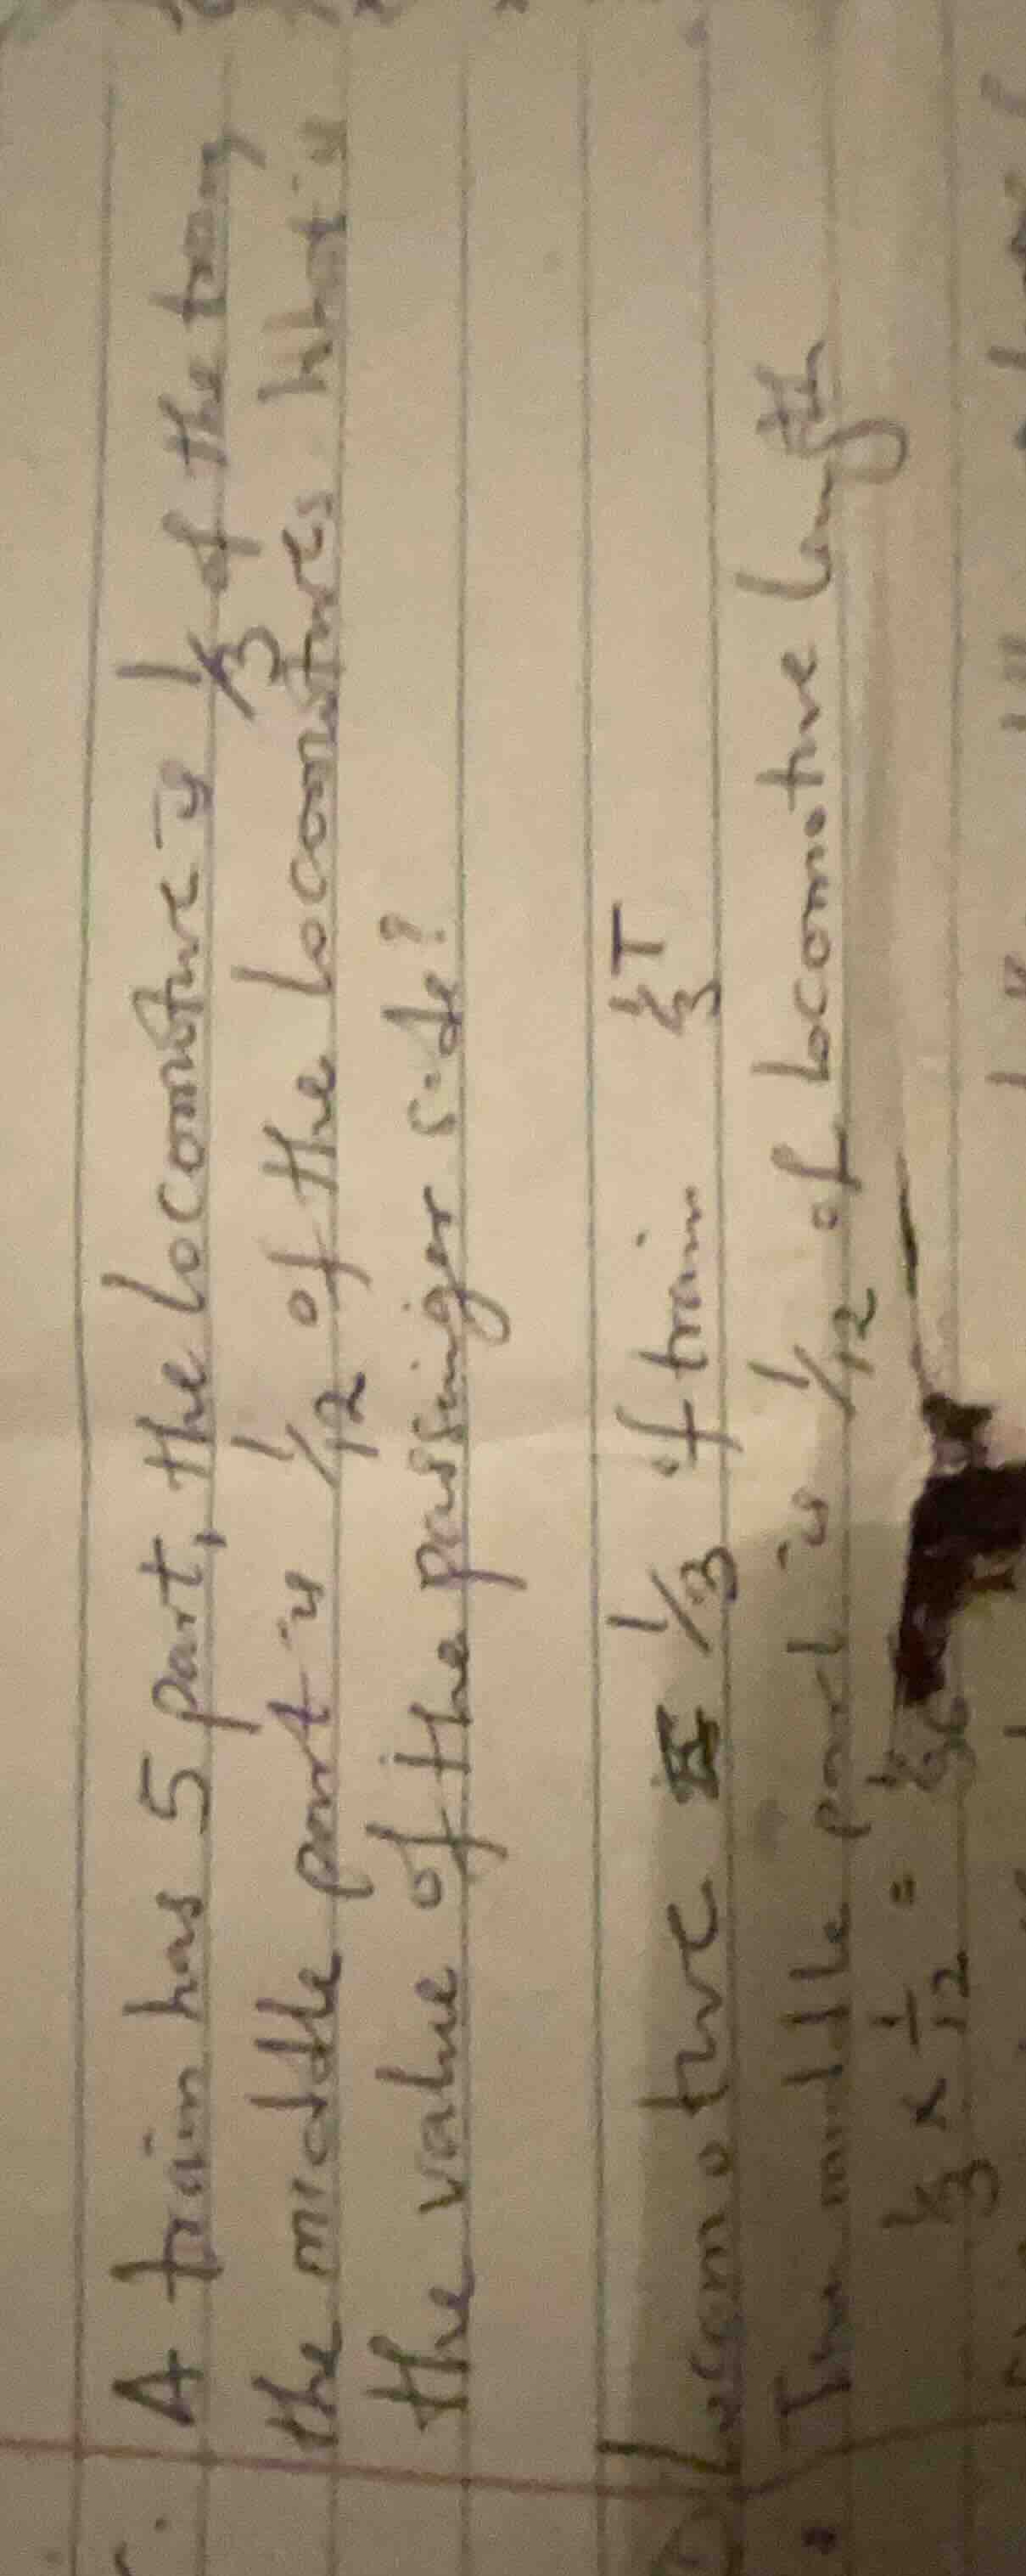 A train has 5 part, the locomotive is 1/3 of the train
the middle part is 1/12 of the locomotives what is
the value of the passinger side?
Locomotive 1/3 of train 1/3 T
The middle part is 1/12 of locomotive length
1/3 x 1/12 = 1/36